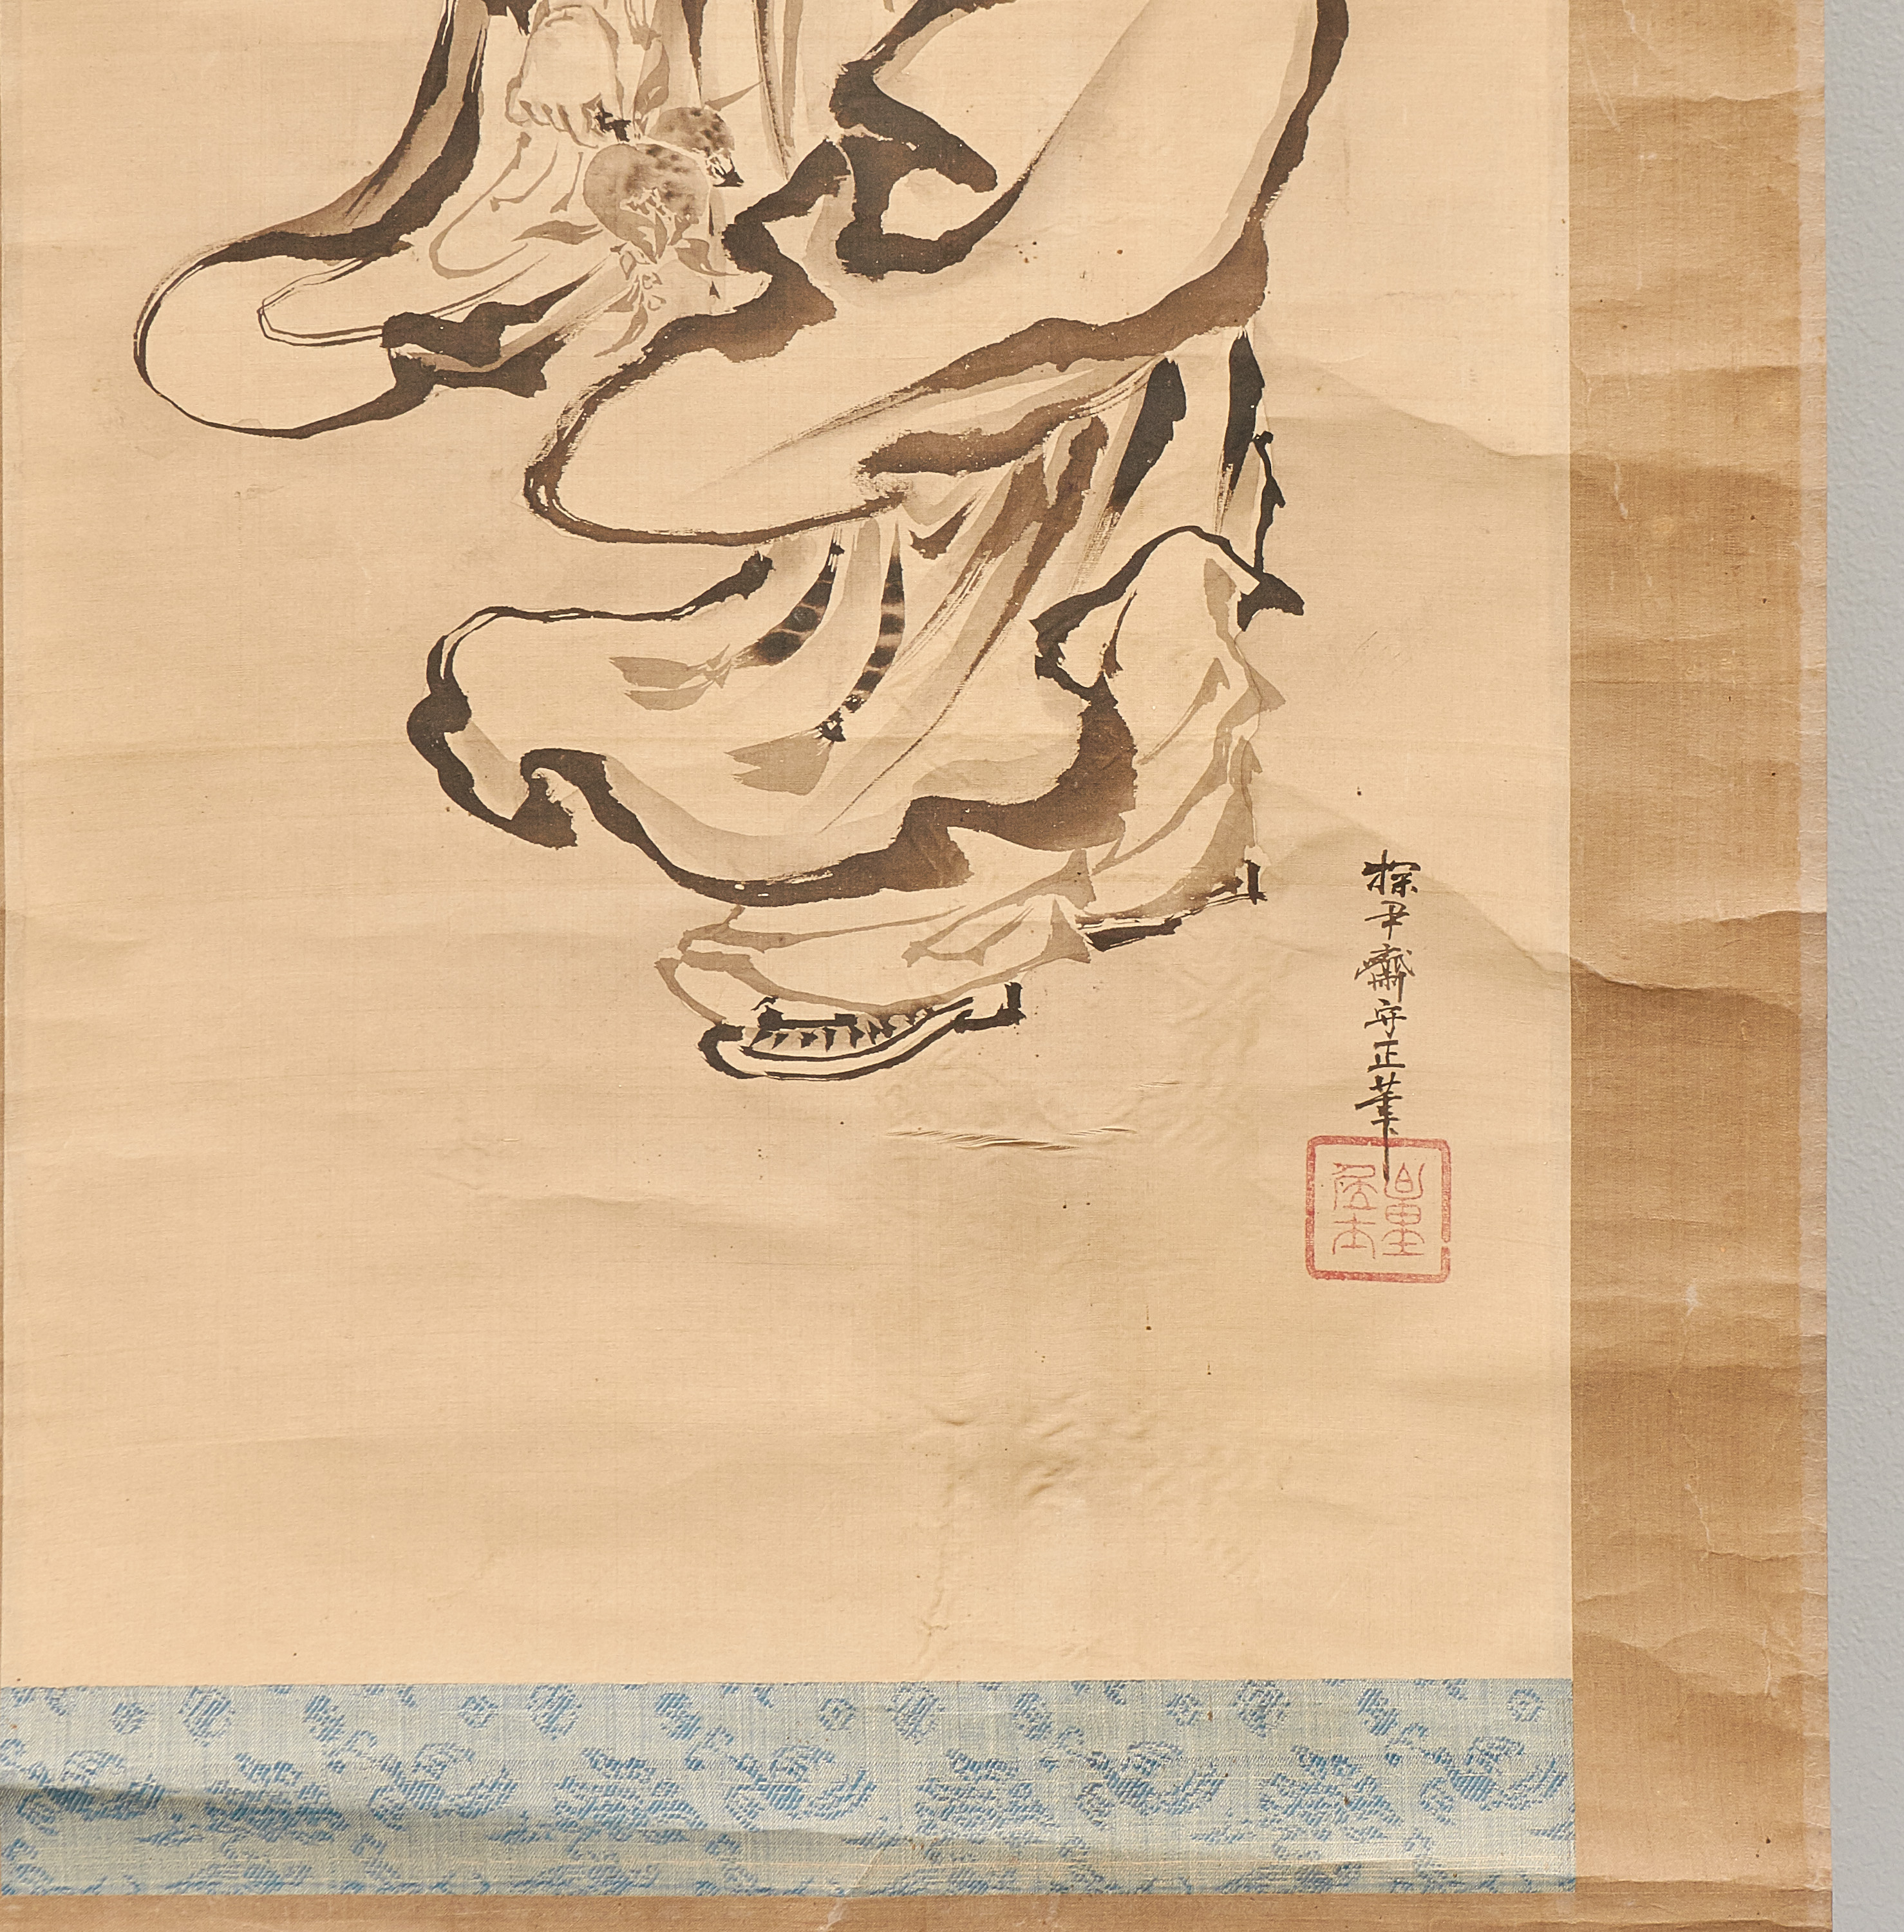 探尹齋守正筆